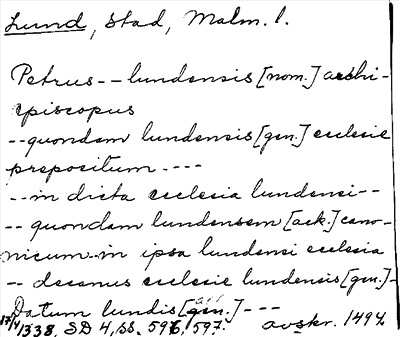 Lund, stad, Malm. l.
Petrus -- lundensis [nom.] archi-
episcopus
-- quondam lundensis [gen.] ecclesie
prepositum ----
-- in dicta ecclesia lundensi --
-- quondam lundensem [ack.] cano-
nicum -- in ipsa lundensi ecclesia
-- decanus ecclesie lundensis [gen.] -
Datum lundis [gen.] ---
17/4 1338. SD 4, ss. 596, 597. avskr. 1494.